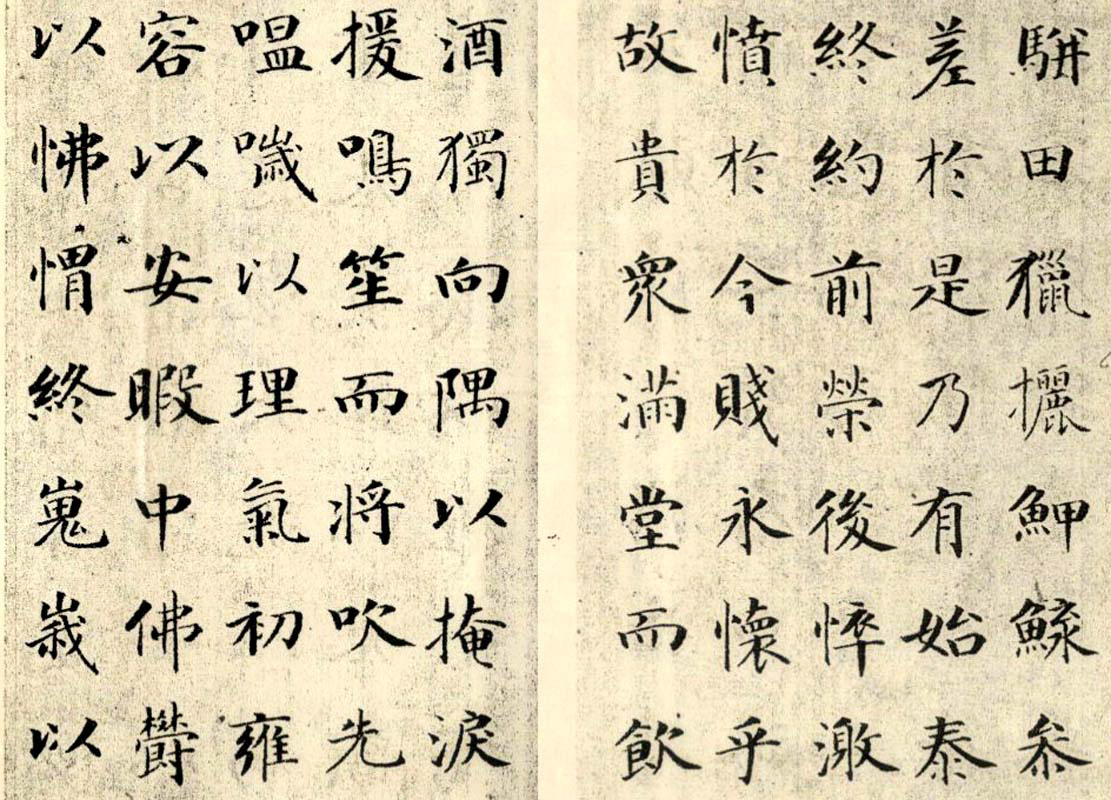 駢田獵攦魻鰈叅
差於是乃有始泰
終約前榮後悴激
憤於今賤永懷乎
故貴衆滿堂而飲
酒獨向隅以掩淚
援鳴笙而将吹先
嗢噦以理氣初雍
容以安暇中佛欝
以怫愲終嵬峩以